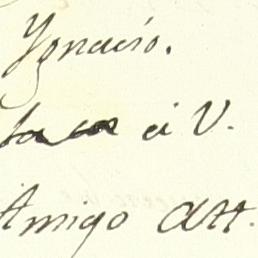 Ygnacio.
á V.
Amigo Att.